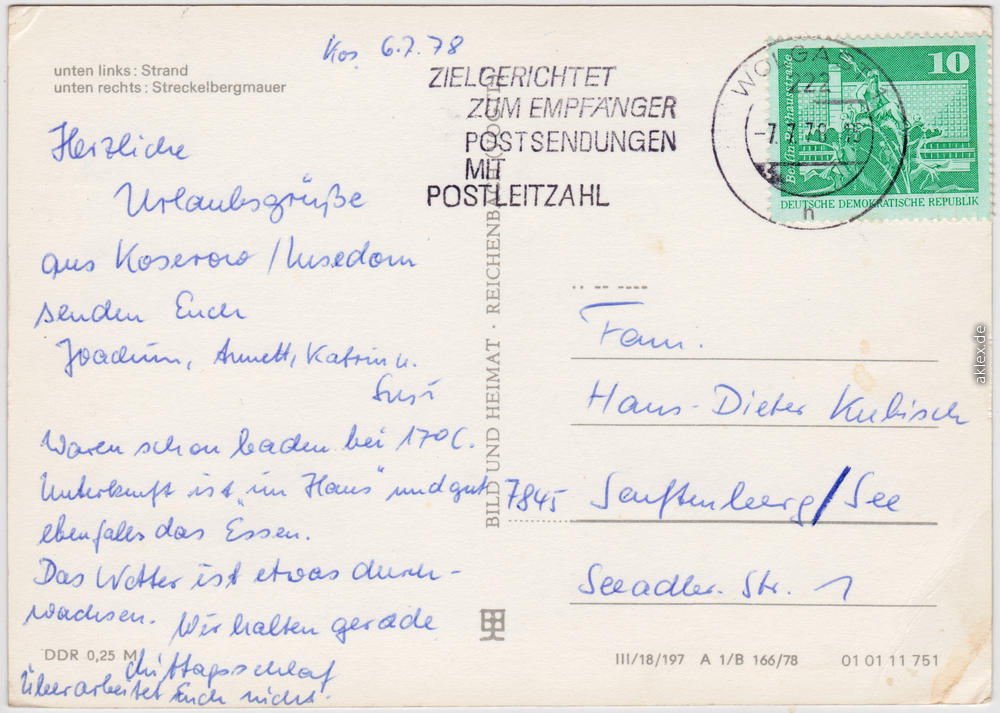 Kos. 6.7.78
unten links: Strand
unten rechts: Streckelbergmauer
Herzliche
Urlaubsgrüße
aus Koserow/Usedom
senden Euch
Joachim, Annett, Katrin u.
Susi
Waren schon baden bei 17°C.
Unterkunft ist "im Haus" und gut
ebenfalls das Essen.
Das Wetter ist etwas durch-
wachsen. Wir halten gerade
Mittagsschlaf
Überarbeitet Euch nicht.
DDR 0,25 M
ZIELGERICHTET
ZUM EMPFÄNGER
POSTSENDUNGEN
MIT
POSTLEITZAHL
WOLGAST
222
-7.7.78
h
10
Berlin, Rathausstraße
DEUTSCHE DEMOKRATISCHE REPUBLIK
BILD UND HEIMAT · REICHENBACH (VOGTL)
Fam.
Hans-Dieter Kubisch
7845 Senftenberg/See
Seeadler-Str. 1
III/18/197 A 1/B 166/78 01 01 11 751
aklex.de